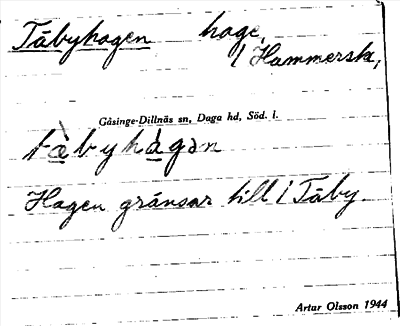 Täbyhagen hage,
1 Hammersta,
Gåsinge-Dillnäs sn, Daga hd, Söd. l.
tæ̀byhàgən
Hagen gränsar till 1 Täby.
Artur Olsson 1944